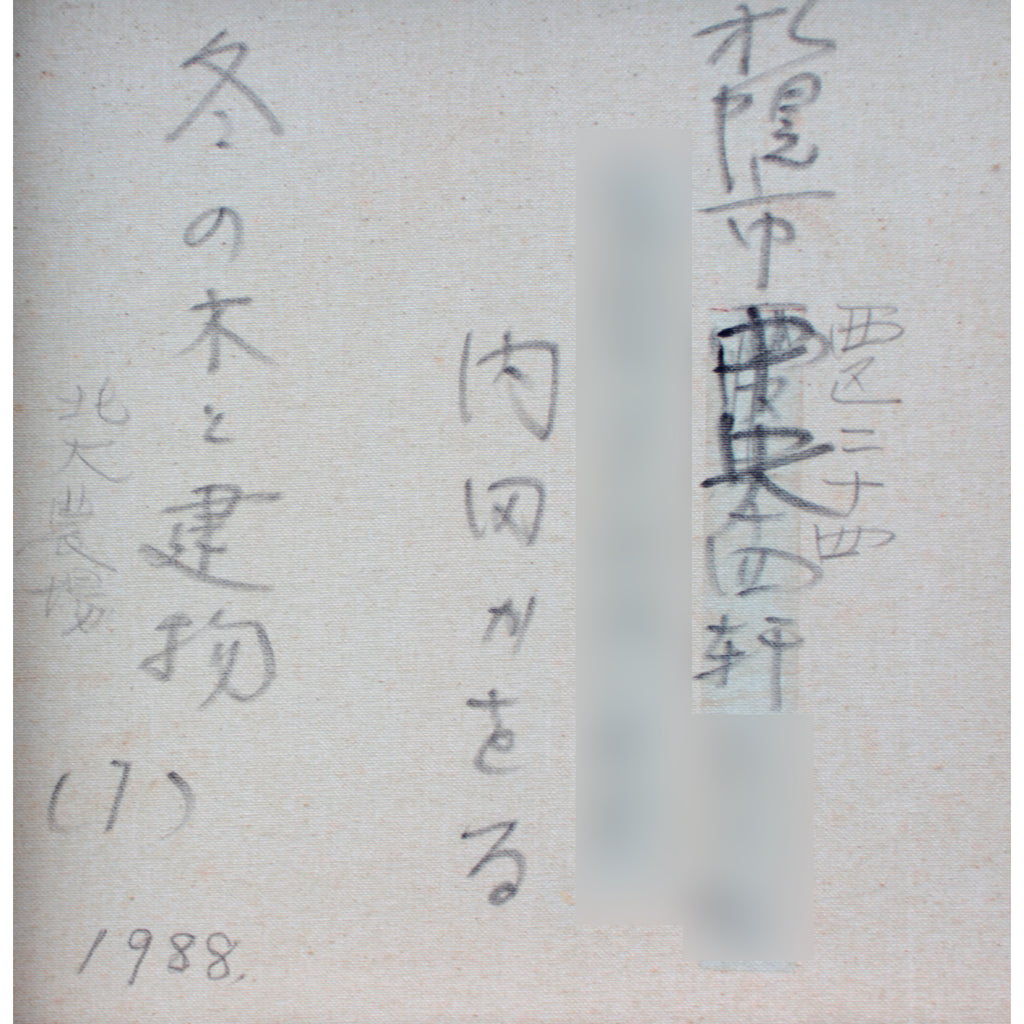 西区二十四
札幌市中央四軒
内田かをる
冬の木と建物(7)
北大農場
1988.